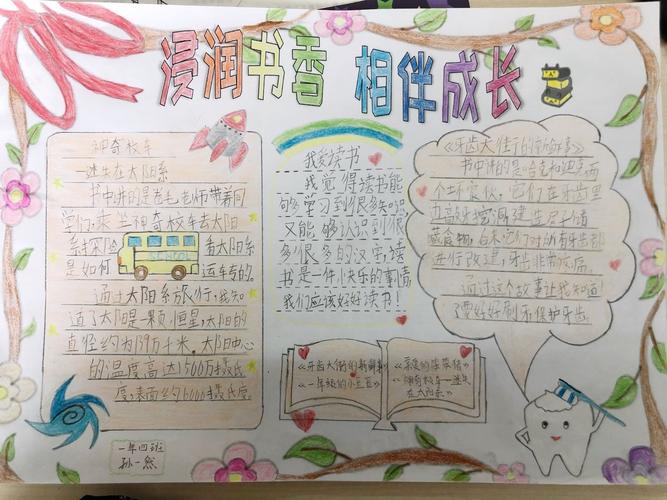 浸润书香 相伴成长
神奇校车
—迷失在太阳系
书中讲的是卷毛老师带着同
学们,乘坐神奇校车去太阳
系探险 看太阳系
是如何 运转的。
SCHOOL
通过太阳系旅行,我知
道了太阳是颗恒星,太阳的
直径约为139万千米,太阳中心
的温度高达1500万摄氏
度,表面约6000摄氏度。
一年四班
孙一然
我爱读书
我觉得读书能
够学习到很多知识,
又能够认识到很
多很多的汉字,读
书是一件快乐的事情,
我们应该好好读书!
《牙齿大街的新鲜事》
《一年级的小豆豆》
书中讲的是哈克和迪克两
个坏家伙,它们在牙齿里
进行改建,牙齿非常疼。
通过这个故事让我知道
了要好好刷牙保护牙齿。